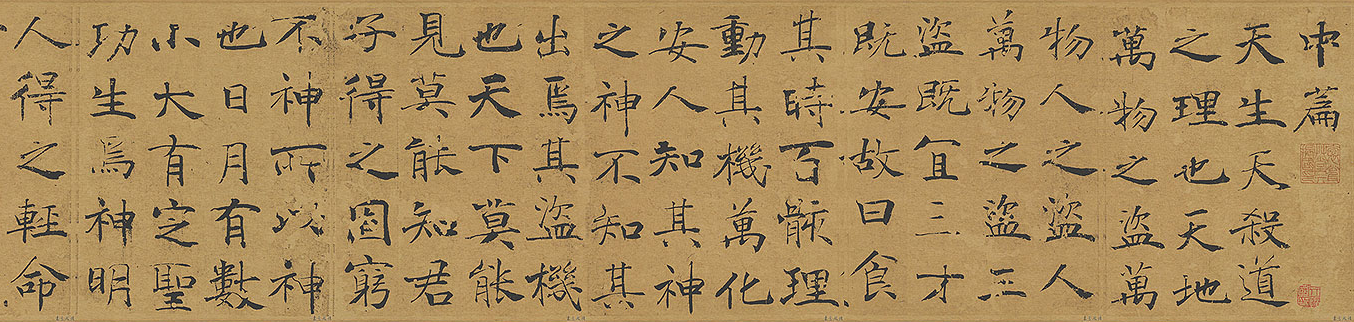 中篇
天生天殺道
之理也天地
萬物之盜萬
物人之盜人
萬物之盜三
盜既宜三才
既安故曰食
其時百骸理
動其機萬化
安人知其神
之神不知其
出焉其盜機
也天下莫能
見莫能知君
子得之固窮
不神所以神
也日月有數
小大有定聖
功生焉神明
人得之輕命